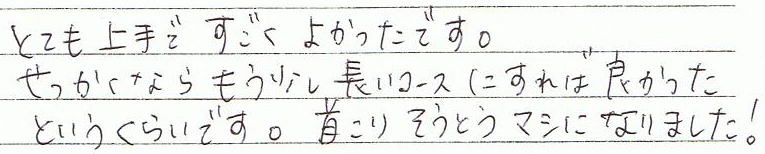 とても上手で すごく よかったです。
せっかくなら もう少し 長いコースにすれば 良かった
というくらいです。首こり そうとう マシに なりました!